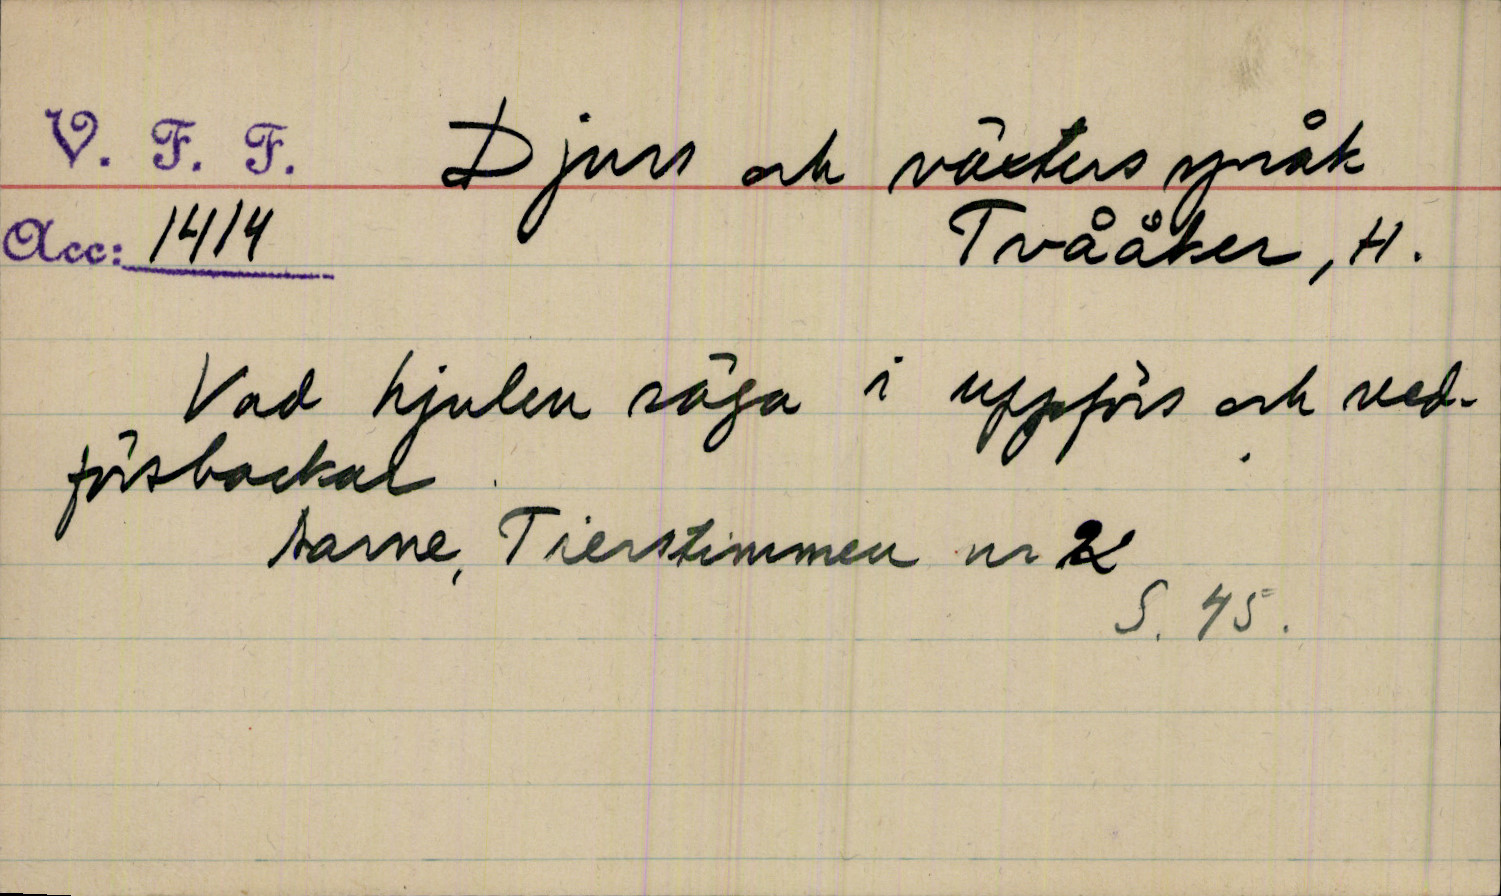 V. F. F. Djurs och växters språk
Acc: 1414 Tvååker, H.
Vad hjulen säga i uppförs och ned-
försbackar
Aarne, Tierstimmen nr 2
S. 45.